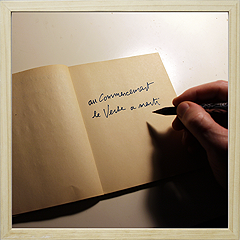 au Commencement
le Verbe a menti